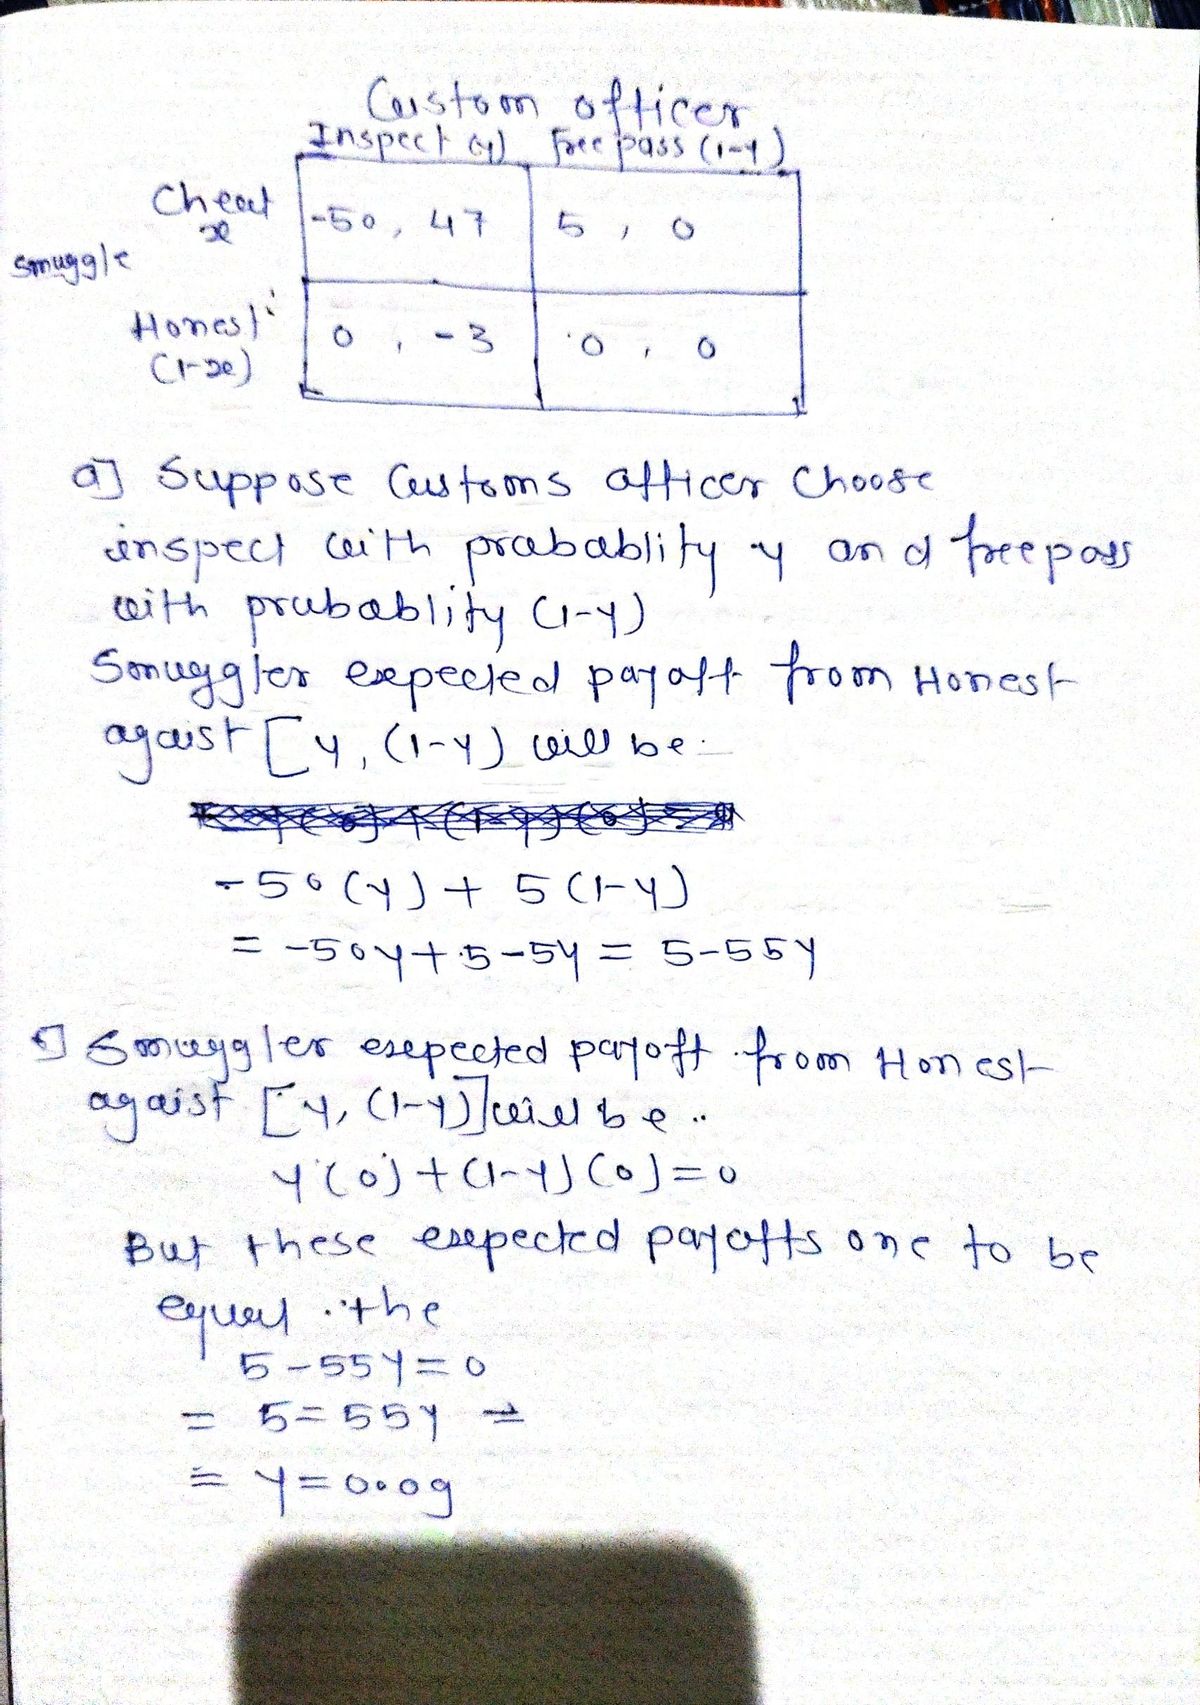 Custom officer
Inspect (y) Free pass (1-y)
Cheat -50, 47 5, 0
x
Smuggle
Honest 0, -3 0, 0
(1-x)
a] Suppose Customs officer Choose
inspect with probablity y and freepass
with probablity (1-y)
Smuggler expected payoff from Honest
agaist [y, (1-y) will be:
-50(y) + 5(1-y)
= -50y+5-5y = 5-55y
Smuggler expected payoff from Honest
agaist [y, (1-y)] will be..
y(0)+(1-y)(0)=0
But these expected payoffs one to be
equal. the
5-55y=0
= 5=55y =
= y=0.09